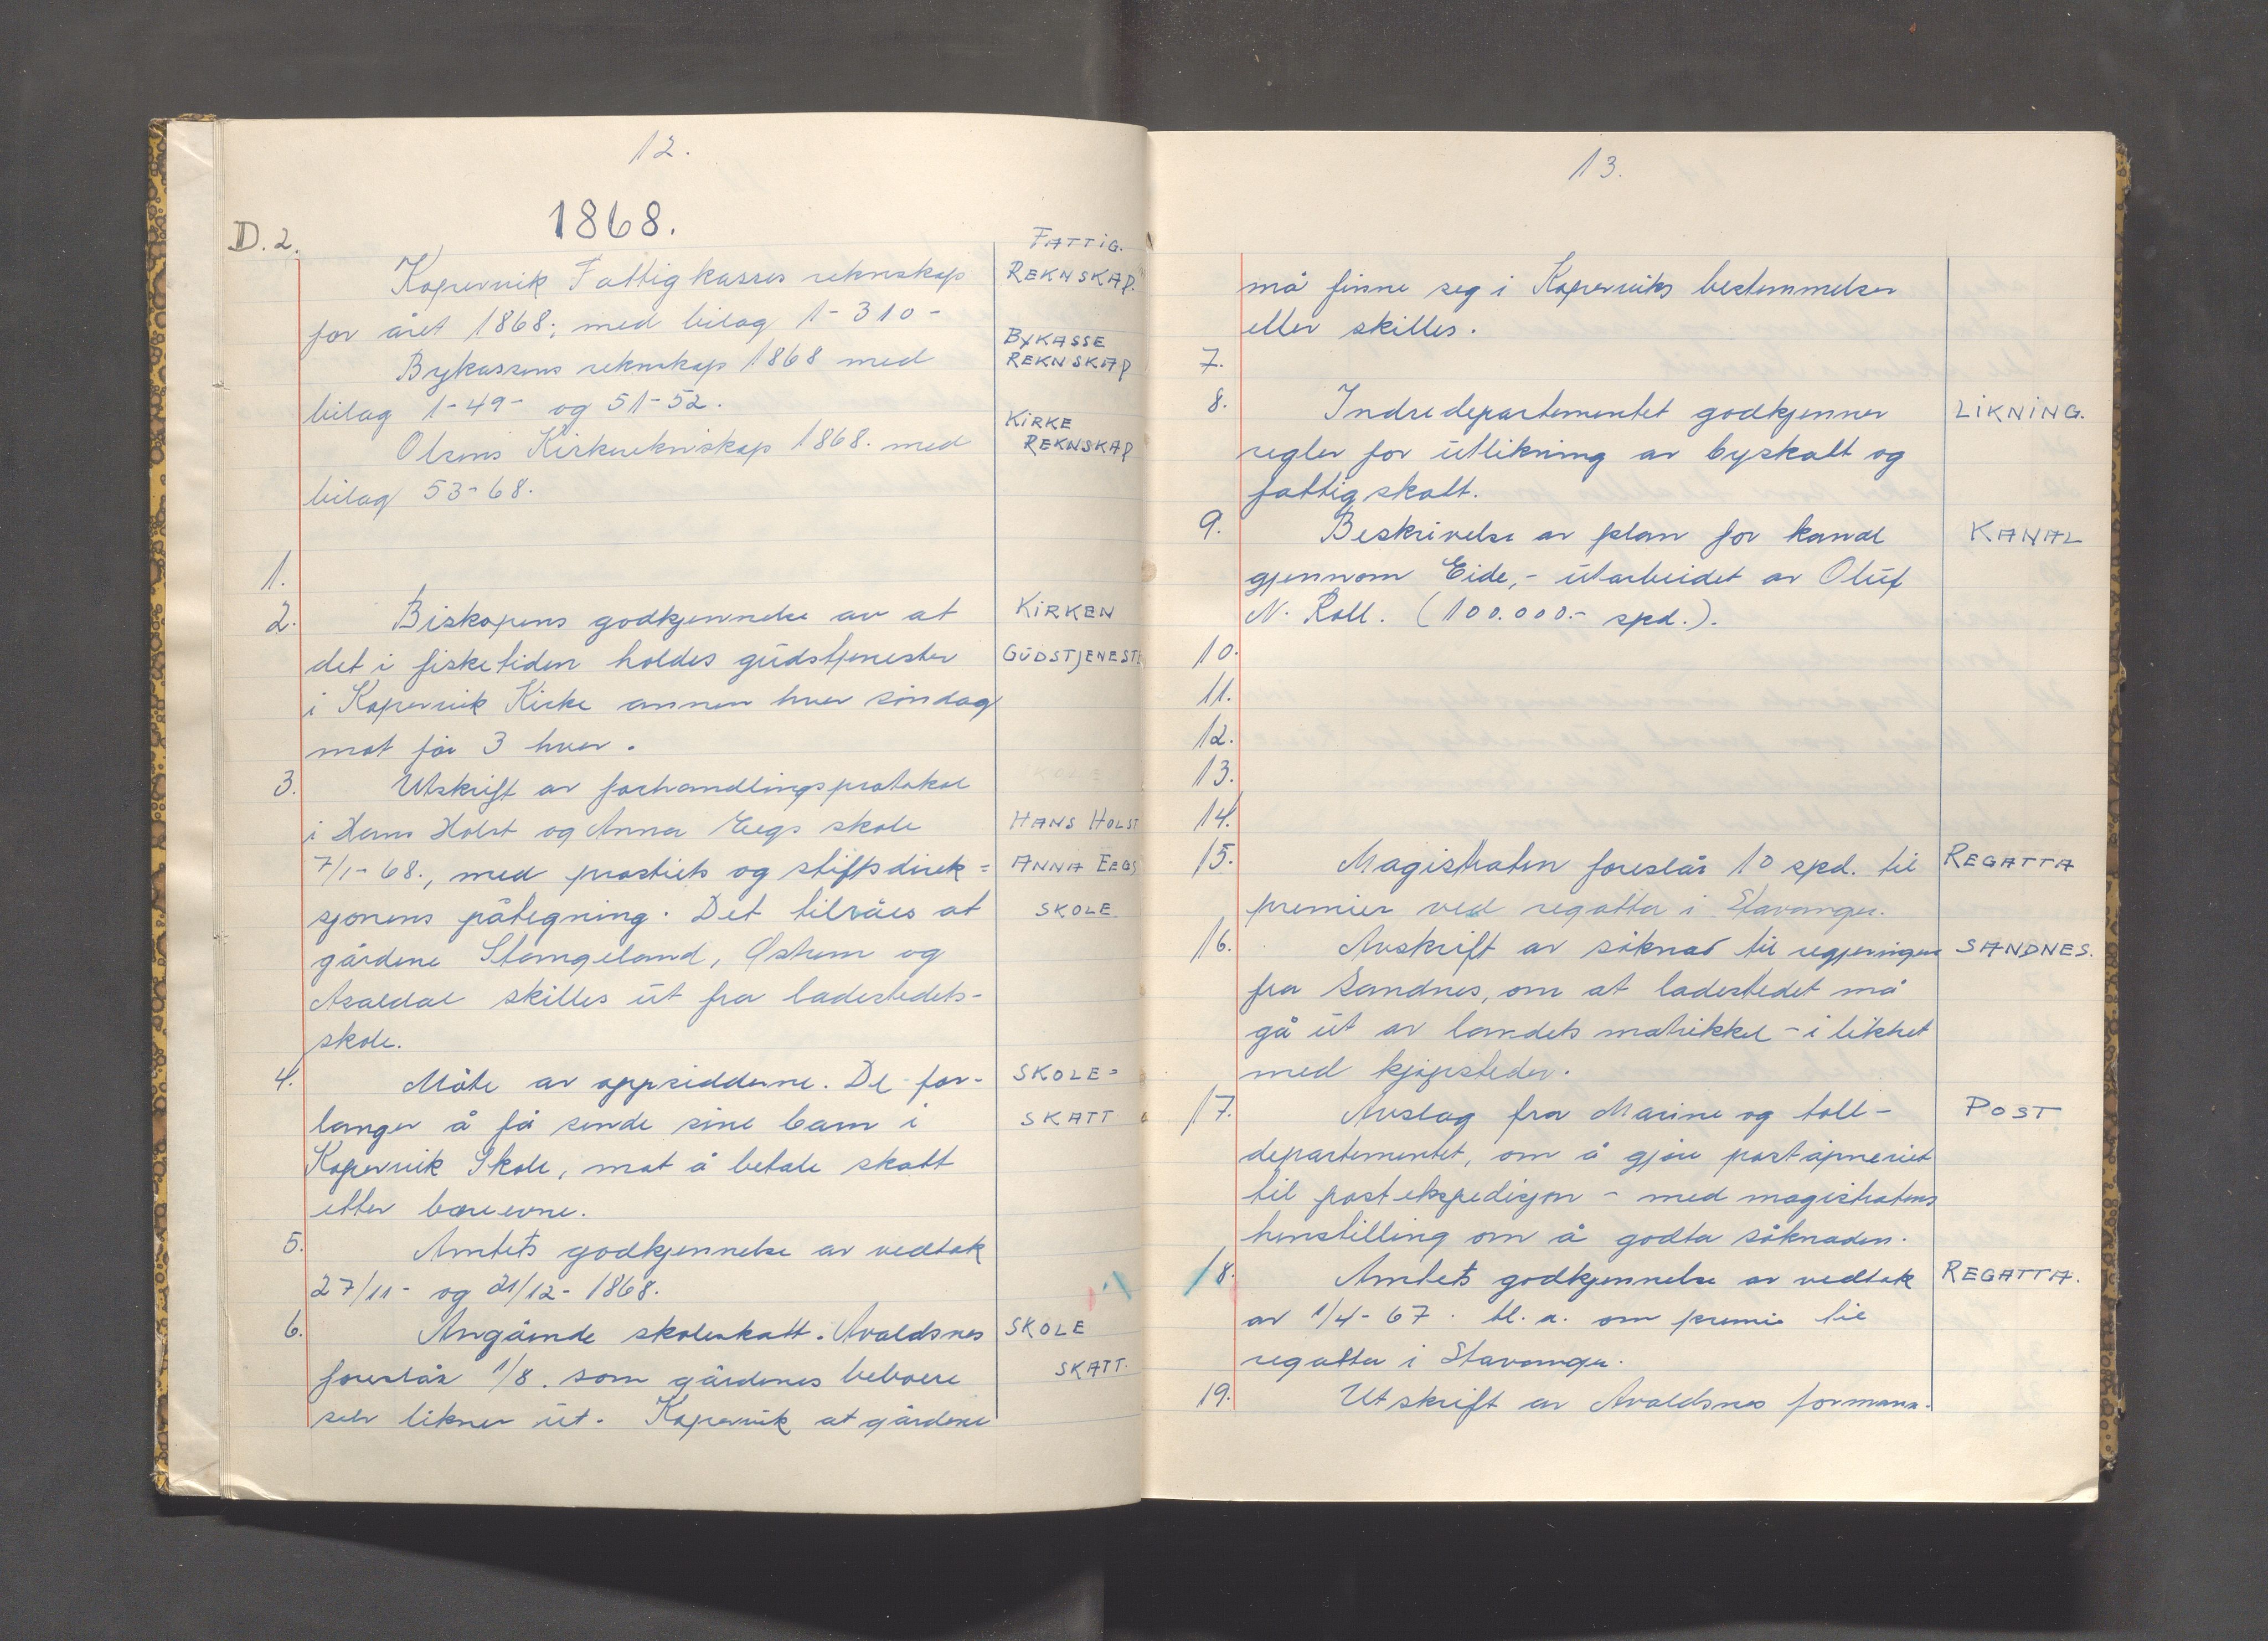 12.
1868.
D. 2.
Kopervik Fattigkasses reknskap
FATTIG.
REKNSKAP.
for året 1868; med bilag 1-310-
Bykassens reknskap 1868 med
BYKASSE
REKNSKAP
bilag 1-49- og 51-52.
Olsens Kirkereknskap 1868. med
KIRKE
REKNSKAP
bilag 53-68.
1.
2. Biskopens godkjennelse av at
KIRKEN
det i fisketiden holdes gudstjenester
GUDSTJENESTE
i Kopervik Kirke annen hver søndag
mot før 3 hver.
3. Utskrift av forhandlingsprotokol
i Hans Holst og Anna Eegs skole
HANS HOLST
7/1-68., med prostiets og stiftsdirek=
ANNA EEGS
sjonens påtegning. Det tilråes at
SKOLE
gårdene Stangeland, Østrem og
Åsaldal skilles ut fra ladestedets-
skole.
4. Møte av oppsidderne. De for-
SKOLE=
langer å få sende sine barn i
SKATT
Kopervik Skole, mot å betale skatt
etter bæreevne.
5. Amtets godkjennelse av vedtak
27/11- og 21/12- 1868.
6. Angående skoleskatt. Avaldsnes
SKOLE
foreslår 1/8. som gårdenes beboere
SKATT.
selv likner ut. Kopervik at gårdene
13.
må finne seg i Koperviks bestemmelser
eller skilles.
7.
8. Indredepartementet godkjenner
LIKNING.
regler for utlikning av byskatt og
fattigskatt.
9. Beskrivelse av plan for kanal
KANAL
gjennom Eide,- utarbeidet av Oluf
N. Roll. (100.000.- spd.).
10.
11.
12.
13.
14.
15. Magistraten foreslår 10 spd. til
REGATTA
premier ved regatta i Stavanger.
16. Avskrift av søknad til regjeringen
SANDNES.
fra Sandnes, om at ladestedet må
gå ut av landets matrikkel - i likhet
med kjøpsteder.
17. Avslag fra Marine og toll-
POST
departementet, om å gjøre poståpneriet
til postekspedisjon - med magistratens
henstilling om å godta søknaden.
18. Amtets godkjennelse av vedtak
REGATTA.
av 1/4-67. bl. a. om premie til
regatta i Stavanger.
19. Utskrift av Avaldsnes formann-